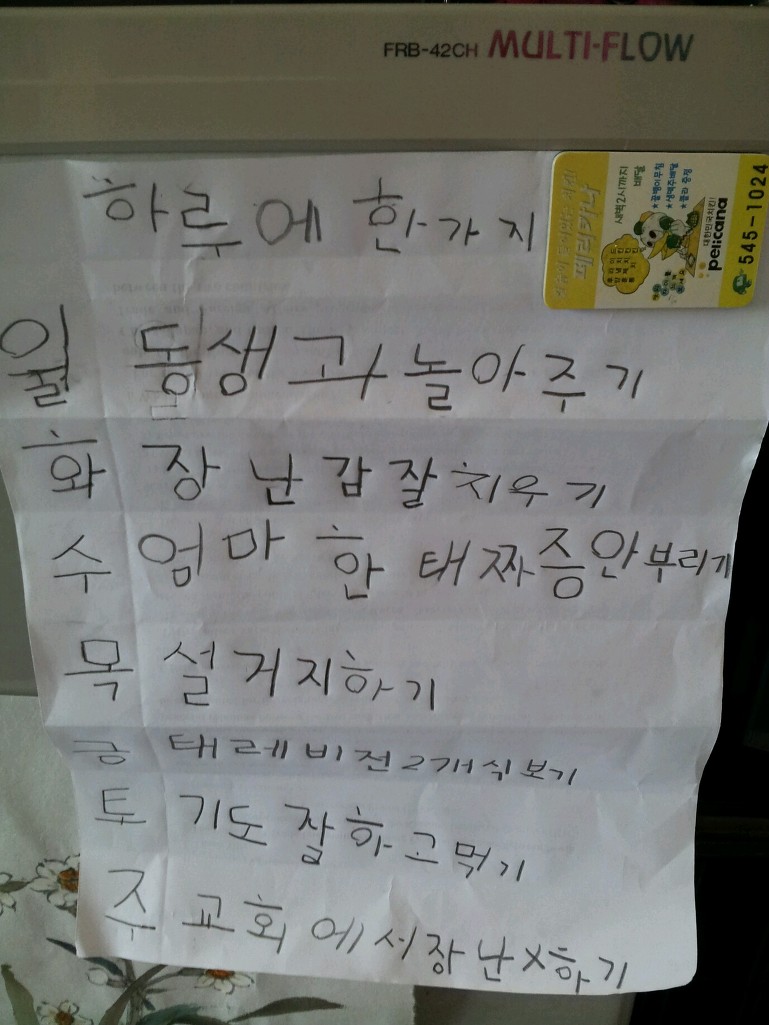 FRB-42CH MULTI-FLOW
하루에 한가지
월 동생과 놀아주기
화 장난감잘치우기
수 엄마 한태짜증안부리기
목 설거지하기
금 태레비전2개식보기
토 기도잘하고먹기
주 교회에서장난X하기
페리카나
새벽2시까지
배달
*콜라 증정
대한민국치킨!
pelicana
545-1024